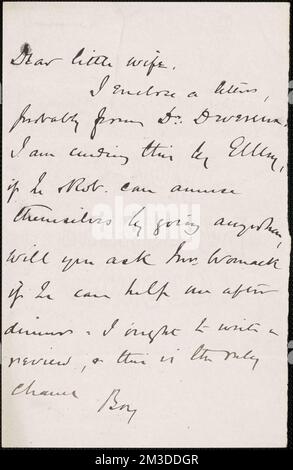 Dear little wife.
I enclose a letter,
probably from Dr.
I am sending this by
if he & Rob. can amuse
themselves by going anywhere,
will you ask Mrs. Womack
if he can help me after
dinner - I ought to write a
review, & this is the only
chance
Boy
alamy
Image ID: 2M3DDGR
www.alamy.com